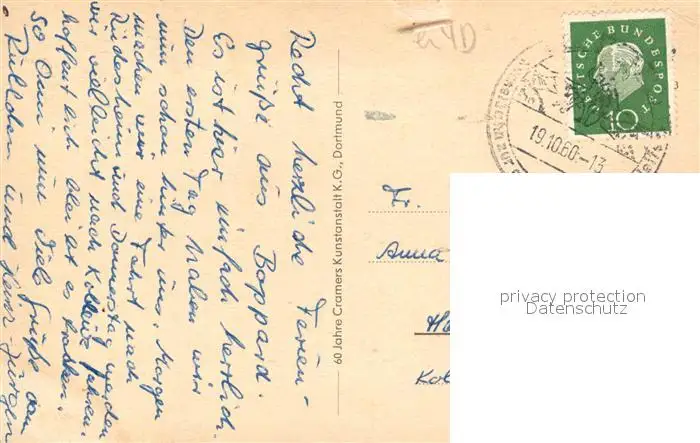 Recht herzliche Ferien-
grüße aus Boppard.
Es ist hier einfach herrlich.
Den ersten Tag haben wir
nun schon hinter uns. Morgen
machen wir eine Fahrt nach
Rüdesheim und Donnerstag werden
wir vielleicht nach Koblenz fahren.
Hoffentlich bleibt es trocken.
So Omi nun viele Grüße von
und Hans-Jürgen
60 Jahre Cramers Kunstanstalt K.G., Dortmund
DEUTSCHE BUNDESPOST
10
19.10.60.-13
Fr.
Anna
privacy protection
Datenschutz